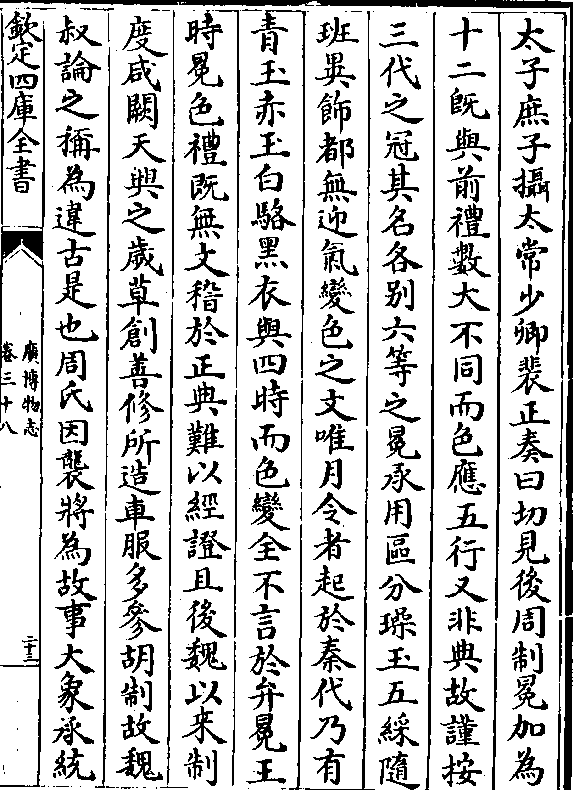 太子庶子攝太常少卿裴正奏曰切見後周制冕加為
十二旣與前禮數大不同而色應五行又非典故謹按
三代之冠其名各别六等之冕承用區分璪玉五綵隨
班異飾都無迎氣變色之文唯月令者起於秦代乃有
青玉赤玉白駱黑衣與四時而色變全不言於弁冕王
時冕色禮旣無文稽於正典難以經證且後魏以來制
度咸闕天興之歲草創善修所造車服多參胡制故魏
叔論之稱為違古是也周氏因襲將為故事大象承統
欽定四庫全書
廣博物志
卷三十八
三十三